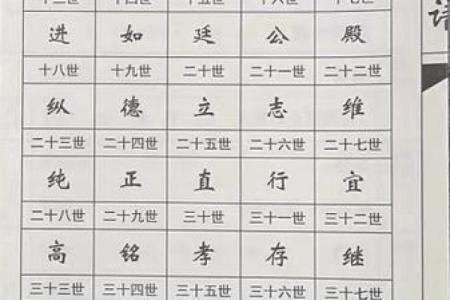 十三世 十四世 十五世 十六世 十七世
进 如 廷 公 殿
十八世 十九世 二十世 二十一世 二十二世
纵 德 立 志 维
二十三世 二十四世 二十五世 二十六世 二十七世
纯 正 直 行 宜
二十八世 二十九世 三十世 三十一世 三十二世
高 铭 孝 存 继
三十三世 三十四世 三十五世 三十六世 三十七世